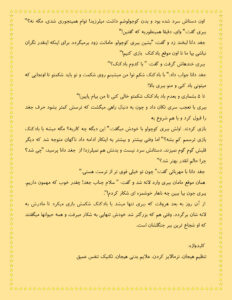 اون دستاش سرد شده بود و بدن کوچولوشم داشت میلرزید! توام همینجوری شدی، مگه نه؟"
ببری گفت:" وای، دقیقا همینطوریه که گفتین!"
جغد دانا لبخند زد و گفت: "ببین ببری کوچولو مامانت زود برمیگرده. برای اینکه اینقدر نگران
نباشی بیا ما تا اون موقع بادکنک بازی کنیم!"
ببری خندهاش گرفت و گفت: " با کدوم بادکنک؟"
جغد دانا جواب داد:" با بادکنک شکم تو! من میشینم روی شکمت و تو باید شکمتو تا اونجایی که
میتونی باد کنی و منو ببری بالا!
تا ۵ بشماری و بعدم باد بادکنک شکمتو خالی کنی تا من بیام پایین!"
ببری با تعجب سری تکان داد و چون به دنبال راهی میگشت که ترسش کمتر بشود حرف جغد
را قبول کرد و با هم شروع به
بازی کردند. اولش ببری کوچولو با خودش میگفت:" این دیگه چه کاریه؟ مگه میشه با بادکنک
بازی ترسم کم بشه؟" اما وقتی بیشتر و بیشتر به اینکار ادامه داد ناگهان متوجه شد که دیگر
قلبش گوم گوم نمیزند، دستانش سرد نیست و بدنش هم نمیلرزد! از جغد دانا پرسید، "چی شد؟
چرا حالم انقدر بهتر شد؟"
جغد دانا با مهربانی گفت:"چون تو خیلی قوی تر از ترست هستی."
همان موقع مامان ببری وارد لانه شد و گفت: " سلام جناب جغد! چقدر خوب که مهمون داریم.
ببری جون بیا ببین چه ناهار خوشمزه ای شکار کردم!".
از آن روز به بعد هروقت که ببری تنها میشد با بادکنک شکمش بازی میکرد تا مادرش به
لانه شان برگردد. وقتی هم که بزرگتر شد خودش تنهایی به شکار میرفت و همه حیوانها میگفتند
که او شجاع ترین ببر جنگلشان است.
کلیدواژه:
تنظیم هیجان، نرمالایز کردن، علایم بدنی هیجان، تکنیک تنفس عمیق